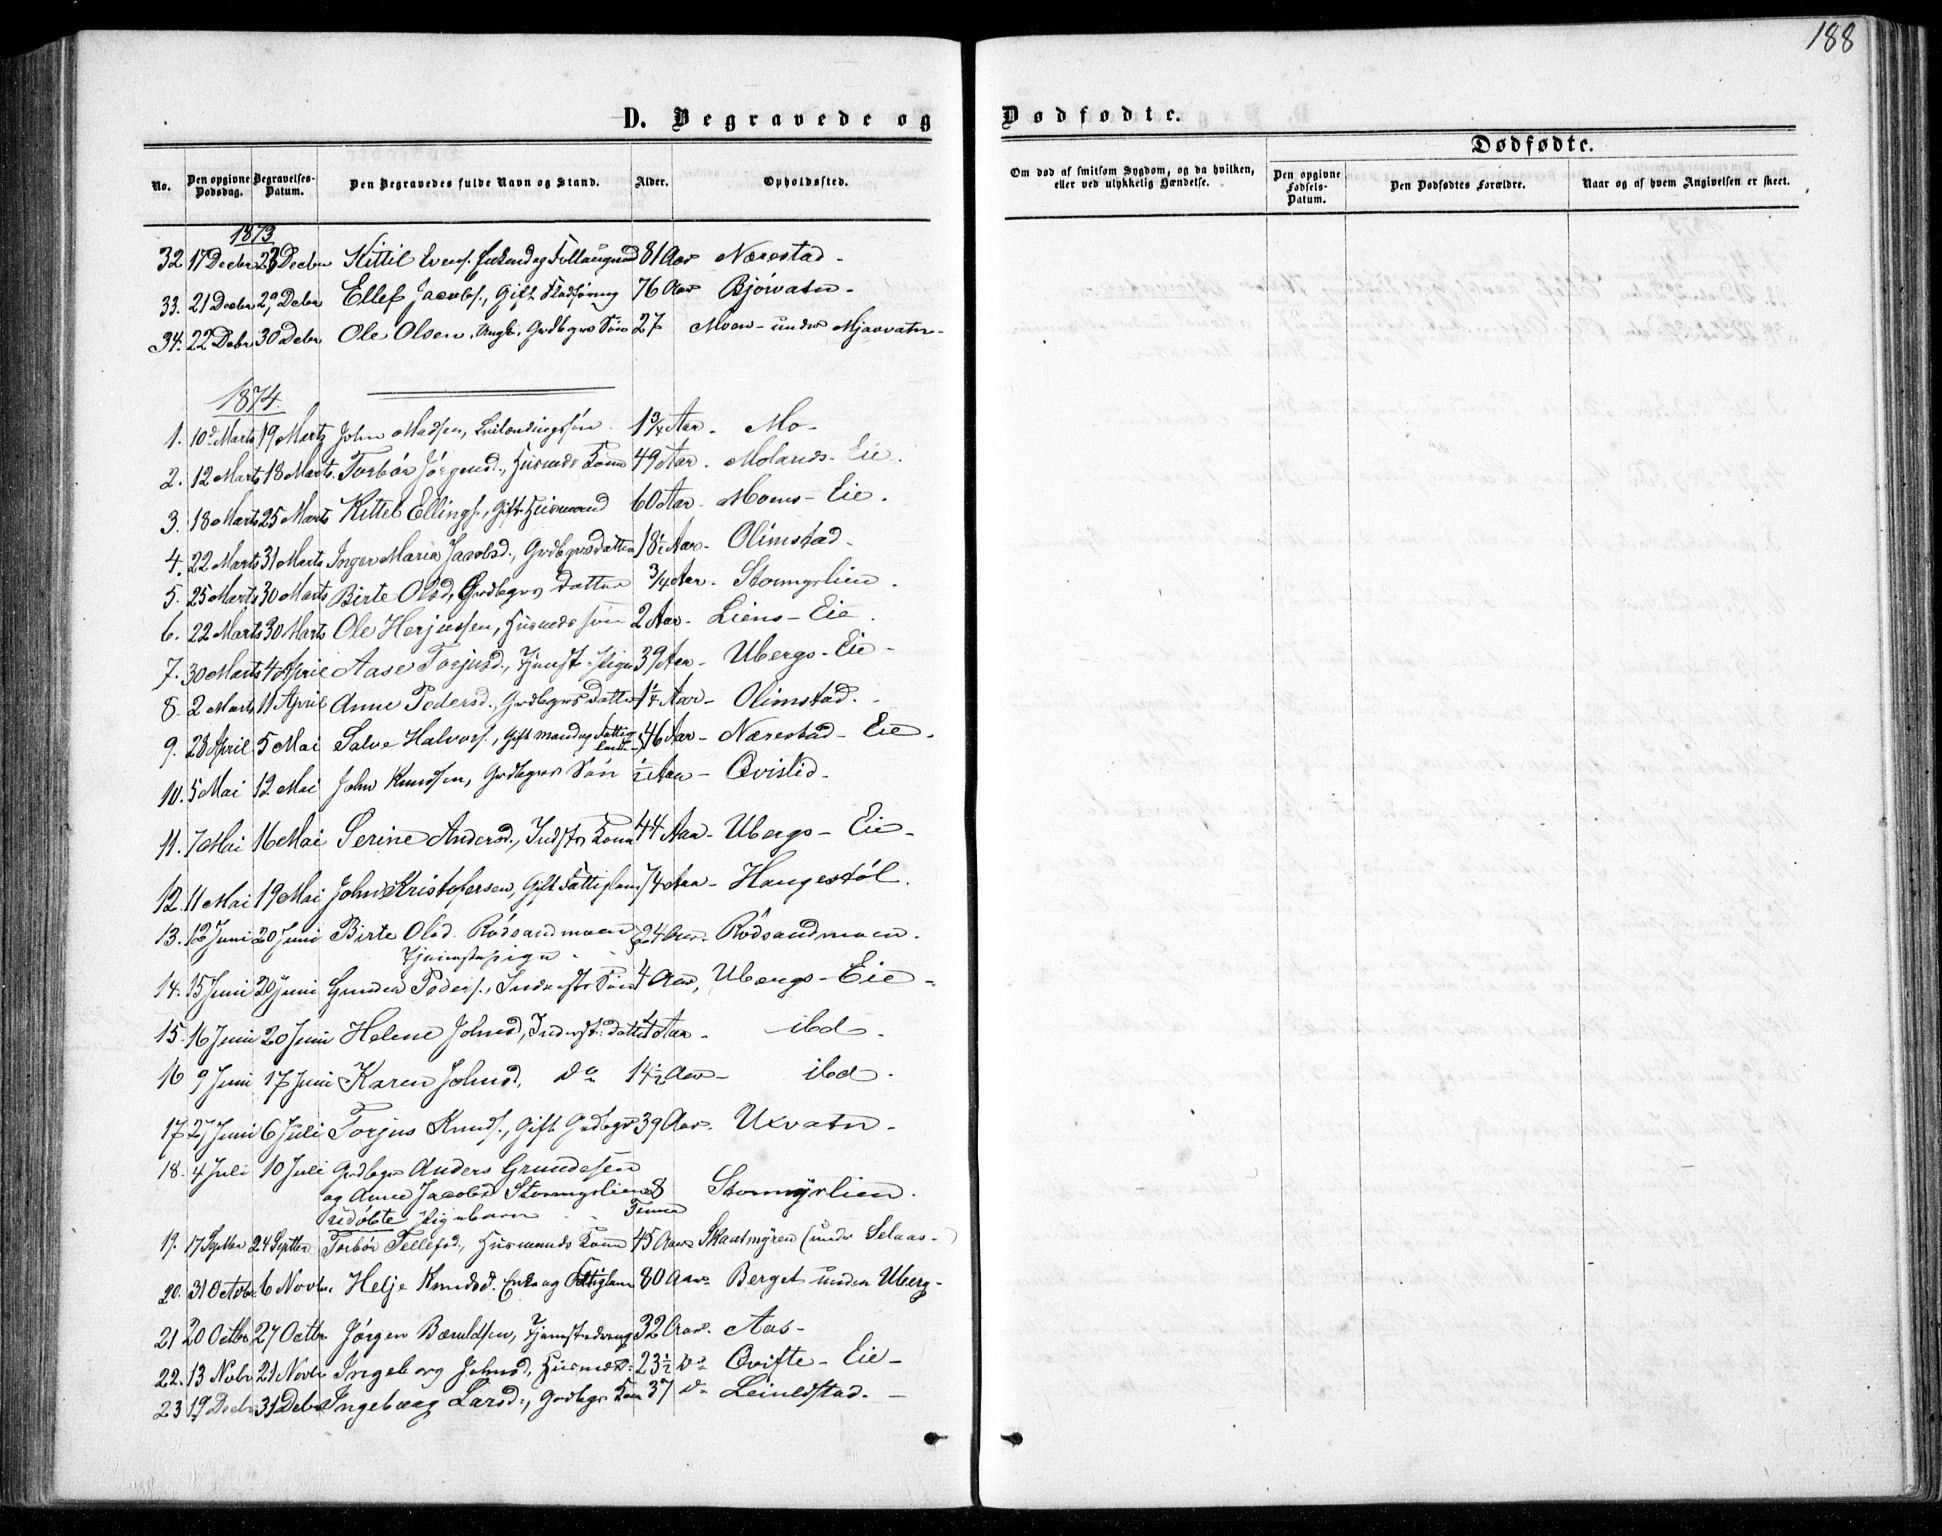 188
D. Begravede og Dødfødte.
Dødfødte.
No. Den opgivne Dødsdag. Begravelses-Datum. Den Begravedes fulde Navn og Stand. Alder. Opholdssted. Om død af smitsom Sygdom, og da hvilken, eller ved ulykkelig Hændelse. Den opgivne Fødsels-Datum. Den Dødfødtes Forældre. Naar og af hvem Angivelsen er skeet.
1873
32 17 Decbr 23 Decbr Kittil Evens. Enkemand og 81 Aar Nærestad -
33. 21 Decbr 29 Debr Ellef Jacobs., Gift Fladføring 76 Aar Bjørvatn -
34. 22 Debr 30 Debr Ole Olsen, Ungk. Grdbgrs Søn 27 Moen - under Mjaavatn -
1874.
1. 10d Marts 19 Marts John Madsen, søn - 1 3/4 Aar - Mo -
2. 12 Marts 18 Marts Torbør Jørgensd., Husmds Kone 49 Aar. Molands - Eie.
3. 18 Marts 25 Marts Kittel Ellings., Gift Husmand 60 Aar - Moens - Eie.
4. 22 Marts 31 Marts Inger Maria Jacobsd., Grdbgrs datter 18 1/2 Aar - Olimstad -
5. 25 Marts 30 Marts Birte Olsd, Grdbgrs Datter 3/4 Aar - Stormyrlien.
6. 22 Marts 30 Marts Ole Herjusson, Husmds søn 2 Aar - Liens - Eie.
7. 30 Marts 4 April Aase Torjusd., Tjenst. Pige 39 Aar - Ubergs - Eie -
8. 2 Marts 11 April Anne Pedersd., Grdbgrs Datter 1 1/4 Aar - Olimstad. -
9. 28 April 5 Mai Salve Halvors., Gift mand og Fattig lem 46 Aar - Nærestad - Eie -
10. 5 Mai 12 Mai John Knudsen, Grdbgrs Søn 1/2 Aar - Qvislid -
11. 7 Mai 16 Mai Serine Andersd., Indsts Kone 44 Aar - Ubergs - Eie -
12. 11 Mai 19 Mai John Kristofersen, Gift Fattiglem 74 Aar - Haugestøl.
13. 12 Juni 20 Juni Birte Olsd. Rødsandmoen 24 Aar. Rødsandmoen.
Tjenestepige -
14. 15 Juni 20 Juni Gunder Peders., Inderst Søn 4 Aar, Ubergs - Eie -
15. 16 Juni 20 Juni Helene Johnsd, Inderst: datter Aar - ibd -
16 9 Juni 17 Juni Karen Johnsd, do 14 1/2 Aar - ibd.
17 27 Juni 6 Juli Torjus Knuds., Gift Grdbgr 39 Aar. Uxvatn -
18. 4 Juli 10 Juli Grdbgr Anders Grundesen
og Anne Jacobsd Stormyrliens 8 Stormyrlien.
udøbte Pigebarn - - Timer
19. 17 Septber 24 Septber Torbør Tellefsd., Husmands Kone 45 Aar Skaatmyren (under Selaas -)
20. 31 Octobr 6 Novbr Helje Knudsd. Enke og Fattiglem 80 Aar Berget under Uberg -
21 20 Octbr 27 Octbr Jørgen Bæruldsen, Tjenestedreng 32 Aar. Aas -
22. 13 Nobr 21 Novbr Ingeborg Johnsd, 23 1/2 do Qvifte - Eie -
23 19 Decbr 31 Debr Ingeborg Larsd., Grdbgr Kone 37 do Leiuldstad. -